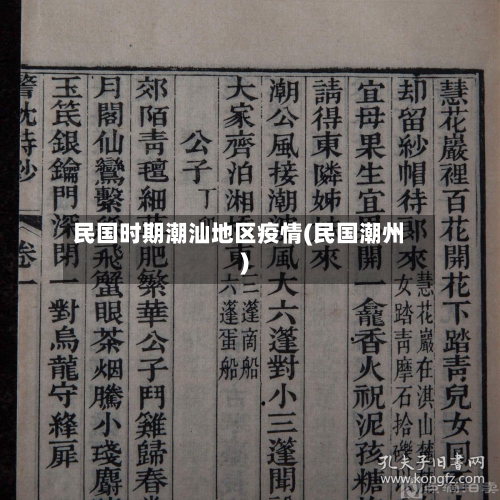 慧花巖裡百花開花下踏青兒女回
却留紗帽待郎來
慧花巖在淇山麓
女踏青摩石拾
宜母果生宜
開一龕香火祝泥孩糖
請得東隣姊
來
潮公風接潮
風大六蓬對小三蓬開
大家齊泊湘
三蓬商船
六蓬蛋船
公子
丁
郊陌青氊細
肥繁華公子鬥雞歸春
月閣仙鸞繫
飛蟹眼茶烟騰小琖麝
玉筦銀鑰門深閉一對烏龍守絳扉
詩鈔
卷一
民国时期潮汕地区疫情(民国潮州
)
孔夫子旧书网
www.kongfz.com